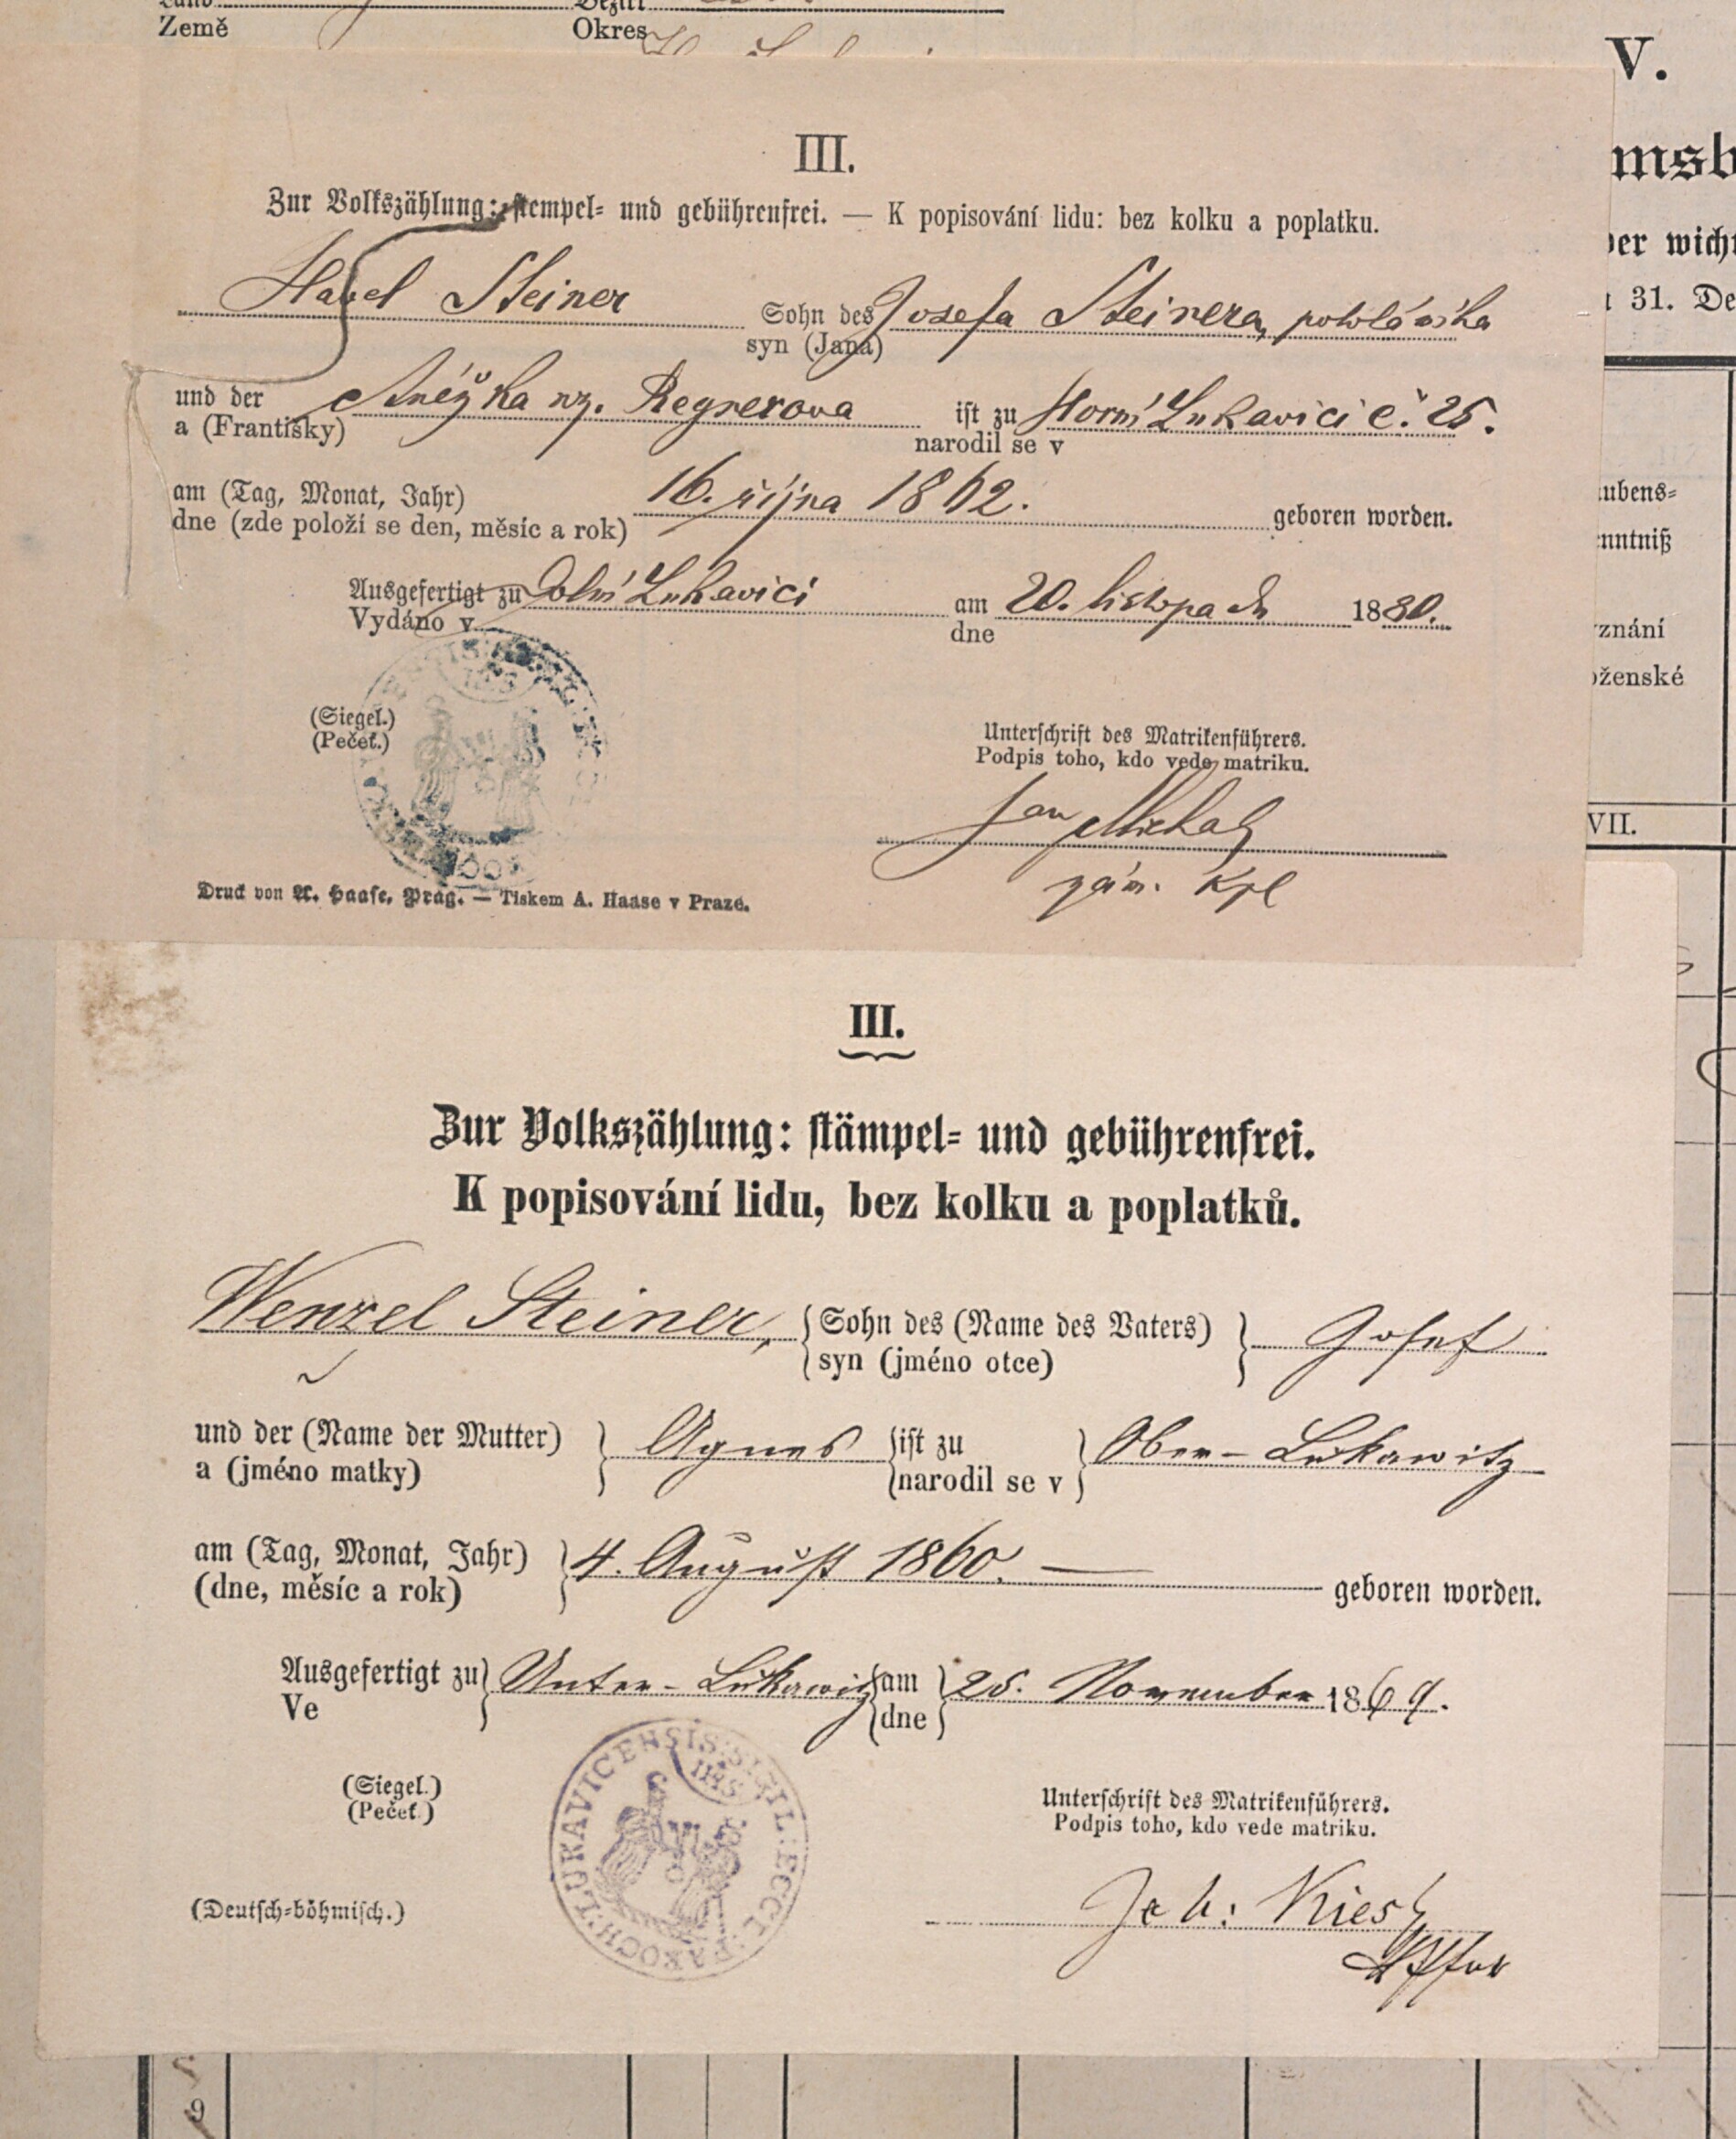 Země
Okres
V.
III.
Zur Volkszählung: stempel= und gebührenfrei. — K popisování lidu: bez kolku a poplatku.
Havel Steiner Sohn des Josefa Steinera,
syn (Jana)
und der Anéžka Regnerova ist zu Horní Lukavici č. 25.
a (Františky) narodil se v
am (Tag, Monat, Jahr) 16. října 1862. geboren worden.
dne (zde položí se den, měsíc a rok)
Ausgefertigt zu Dolní Lukavici am 20. listopadu 1880.
Vydáno v dne
(Siegel.)
(Pečeť.)
Unterschrift des Matrikenführers.
Podpis toho, kdo vede matriku.
Jan Michal
kpl
Druck von A. Haase, Prag. — Tiskem A. Haase v Praze.
31. De
znání
VII.
III.
Zur Volkszählung: stämpel= und gebührenfrei.
K popisování lidu, bez kolku a poplatků.
Wenzel Steiner, Sohn des (Name des Vaters) Josef
syn (jméno otce)
und der (Name der Mutter) Agnes ist zu Ober-Lukawitz
a (jméno matky) narodil se v
am (Tag, Monat, Jahr) 4. August 1860. — geboren worden.
(dne, měsíc a rok)
Ausgefertigt zu Unter-Lukawitz am 25. November 1869.
Ve dne
(Siegel.)
(Pečeť.)
LUKAVICENSIS SIGIL: ECCL: PAROCH:
Unterschrift des Matrikenführers.
Podpis toho, kdo vede matriku.
(Deutsch=böhmisch.)
Joh:
9